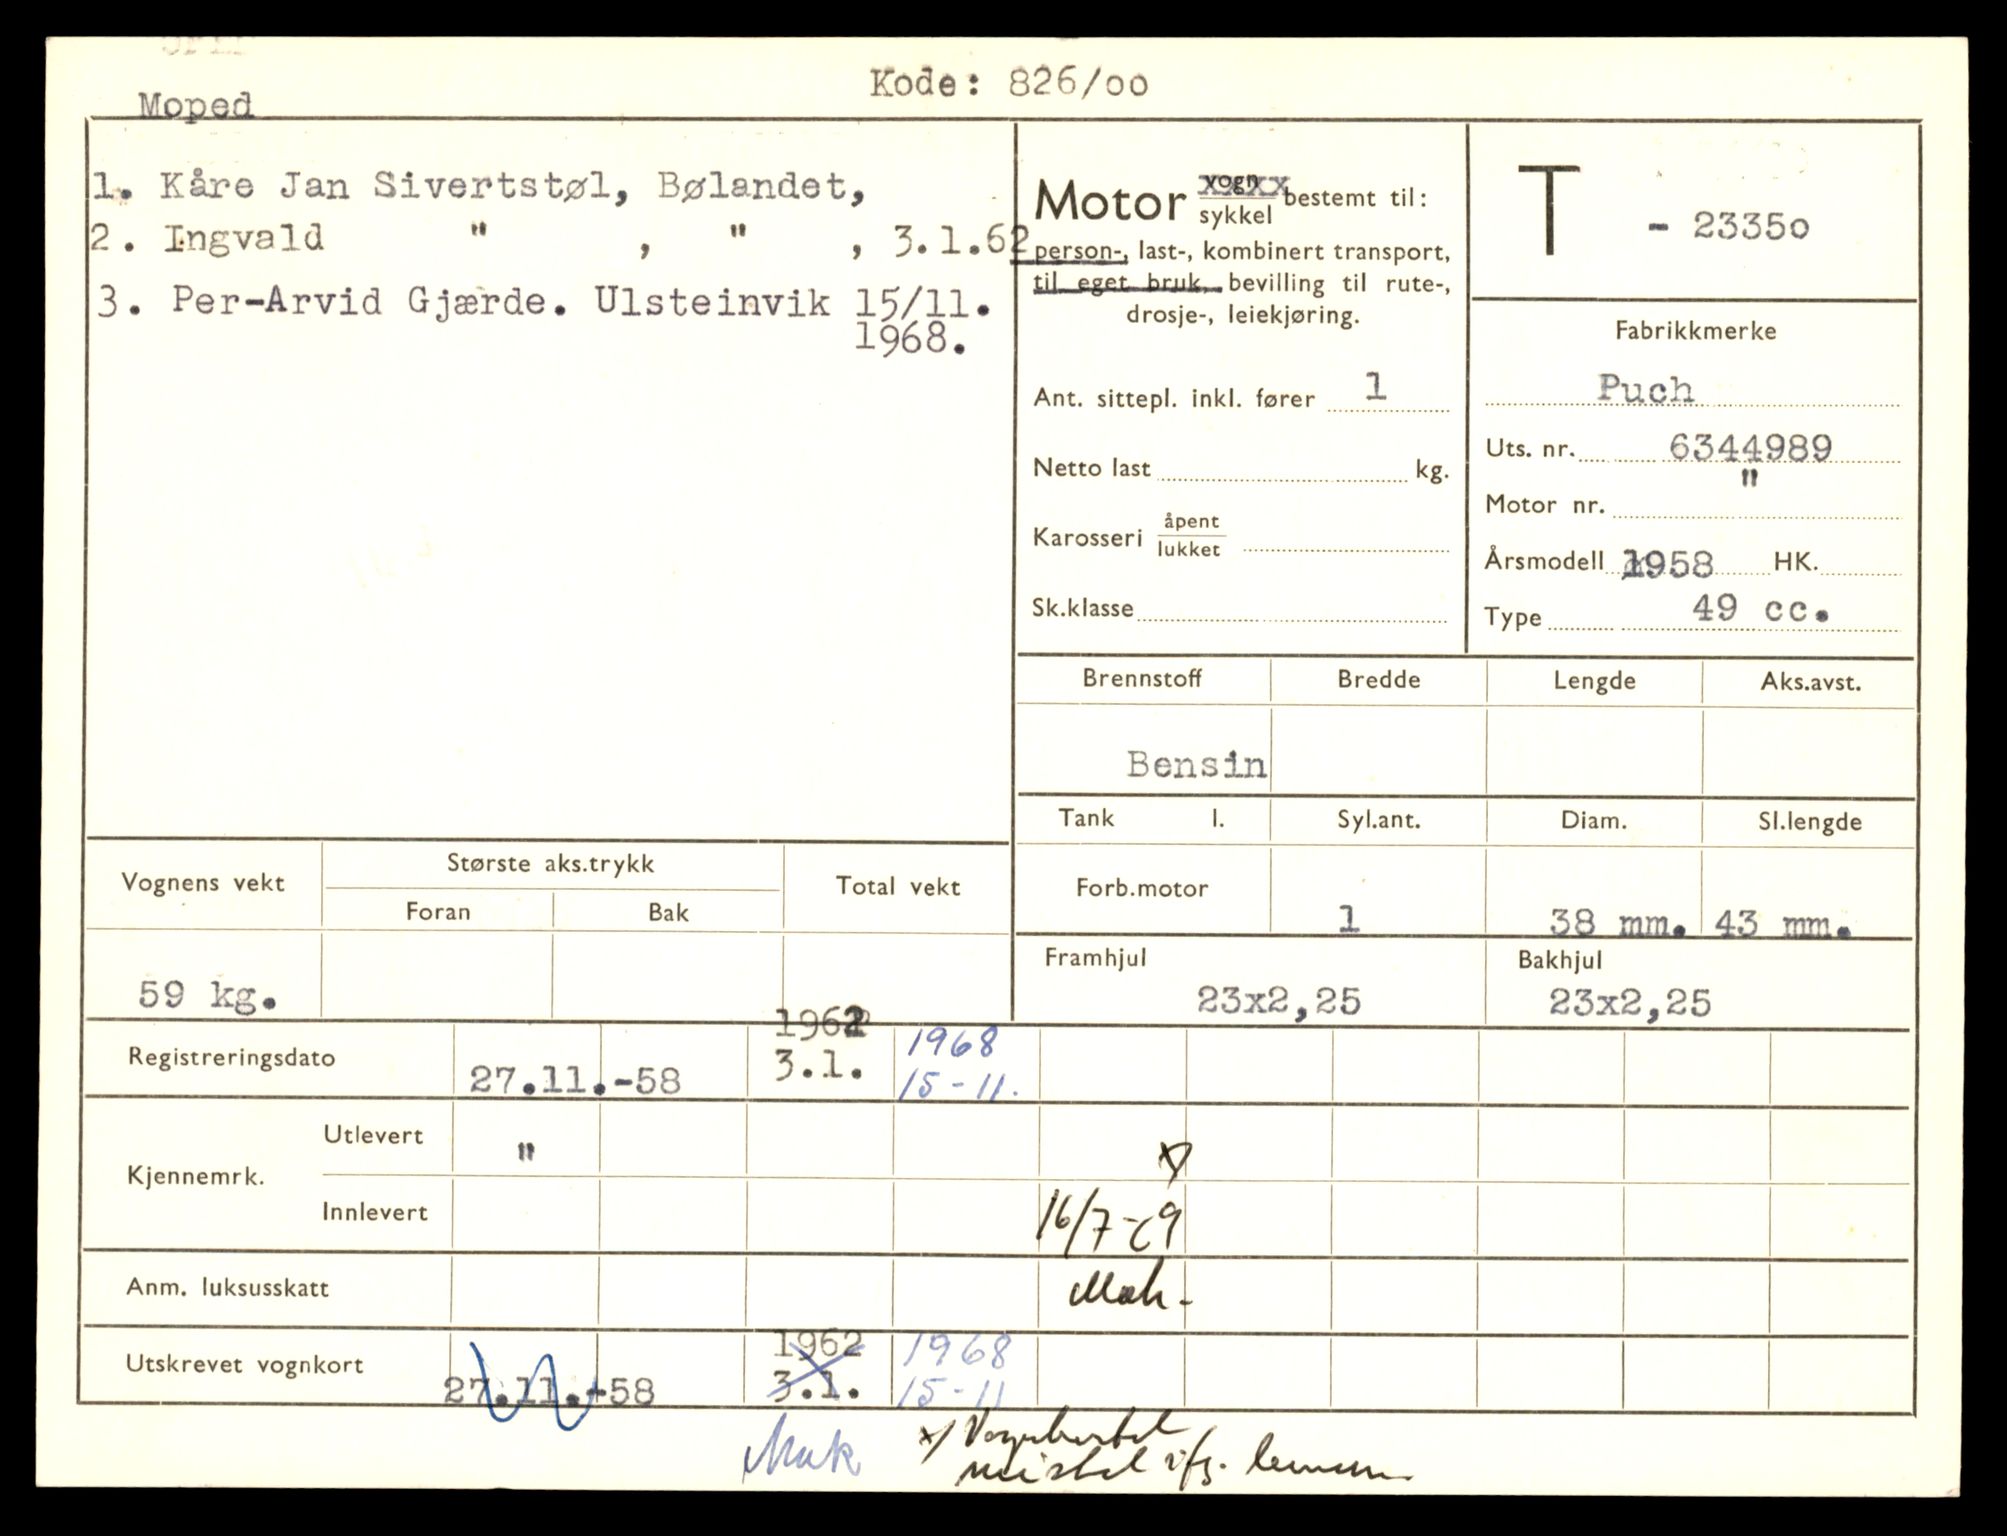 Kode: 826/oo
Moped
1. Kåre Jan Sivertstøl, Bølandet,
2. Ingvald " , " , 3.1.62
3. Per-Arvid Gjærde. Ulsteinvik 15/11.
1968.
Motor vogn/sykkel bestemt til:
person-, last-, kombinert transport,
til eget bruk, bevilling til rute-,
drosje-, leiekjøring.
Ant. sittepl. inkl. fører 1
Netto last kg.
Karosseri åpent/lukket
Sk.klasse
T - 2335o
Fabrikkmerke
Puch
Uts. nr. 6344989
Motor nr. "
Årsmodell 1958 HK.
Type 49 cc.
Brennstoff Bredde Lengde Aks.avst.
Bensin
Tank l. Syl.ant. Diam. Sl.lengde
Forb.motor 1 38 mm. 43 mm.
Framhjul Bakhjul
23x2,25 23x2,25
Vognens vekt Største aks.trykk Total vekt
Foran Bak
59 kg.
1962 1968
Registreringsdato 27.11.-58 3.1. 15-11.
Kjennemrk. Utlevert "
Innlevert 16/7-69
Anm. luksusskatt
1962 1968
Utskrevet vognkort 27.11.-58 3.1. 15-11
x/ Vognkortet